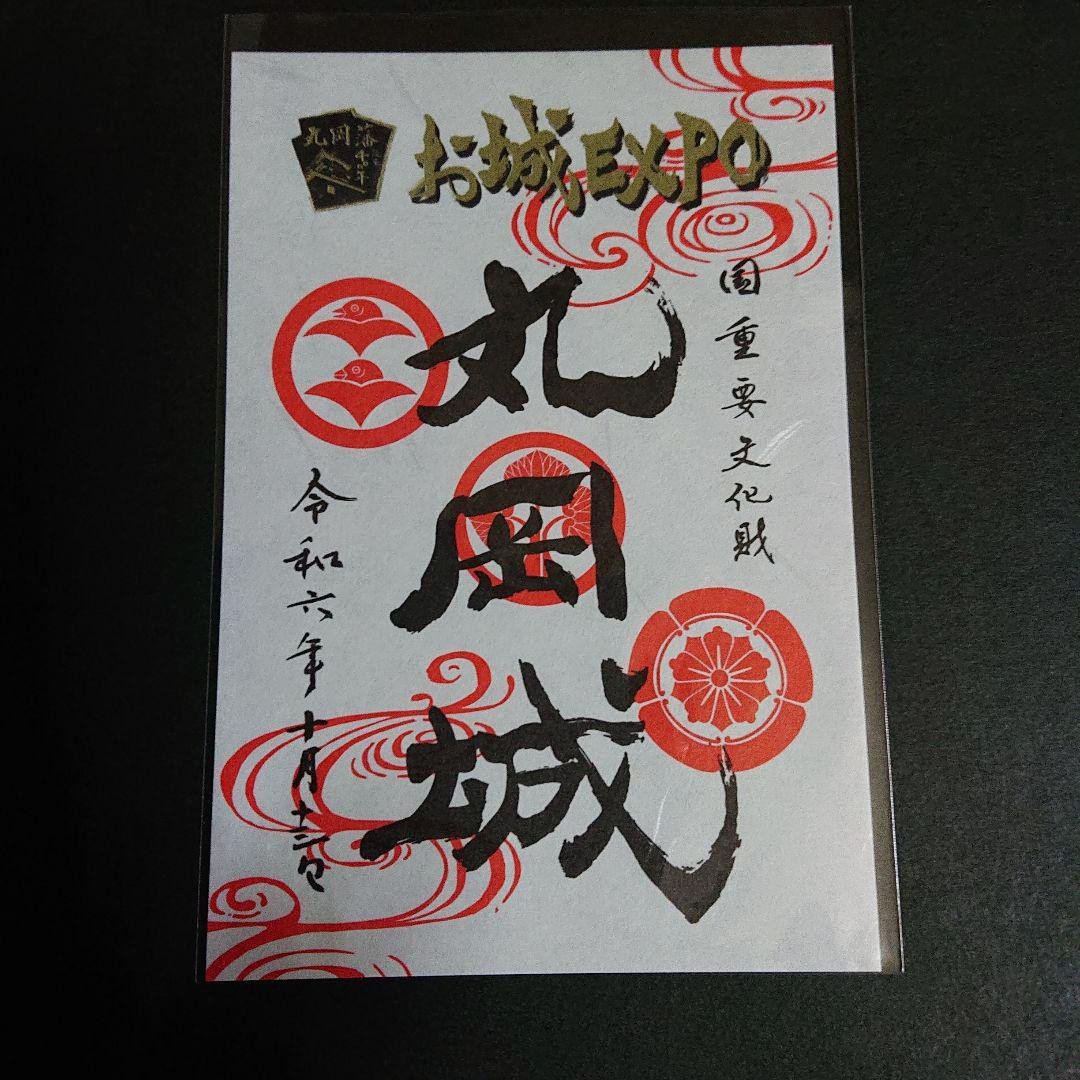 丸岡
お城EXPO
国重要文化財
丸岡城
令和六年十月十三日